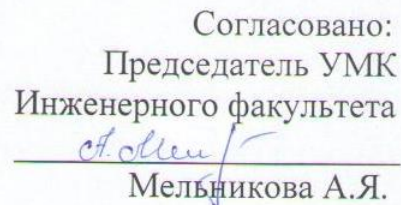 Согласовано:
Председатель УМК
Инженерного факультета
Мельникова А.Я.